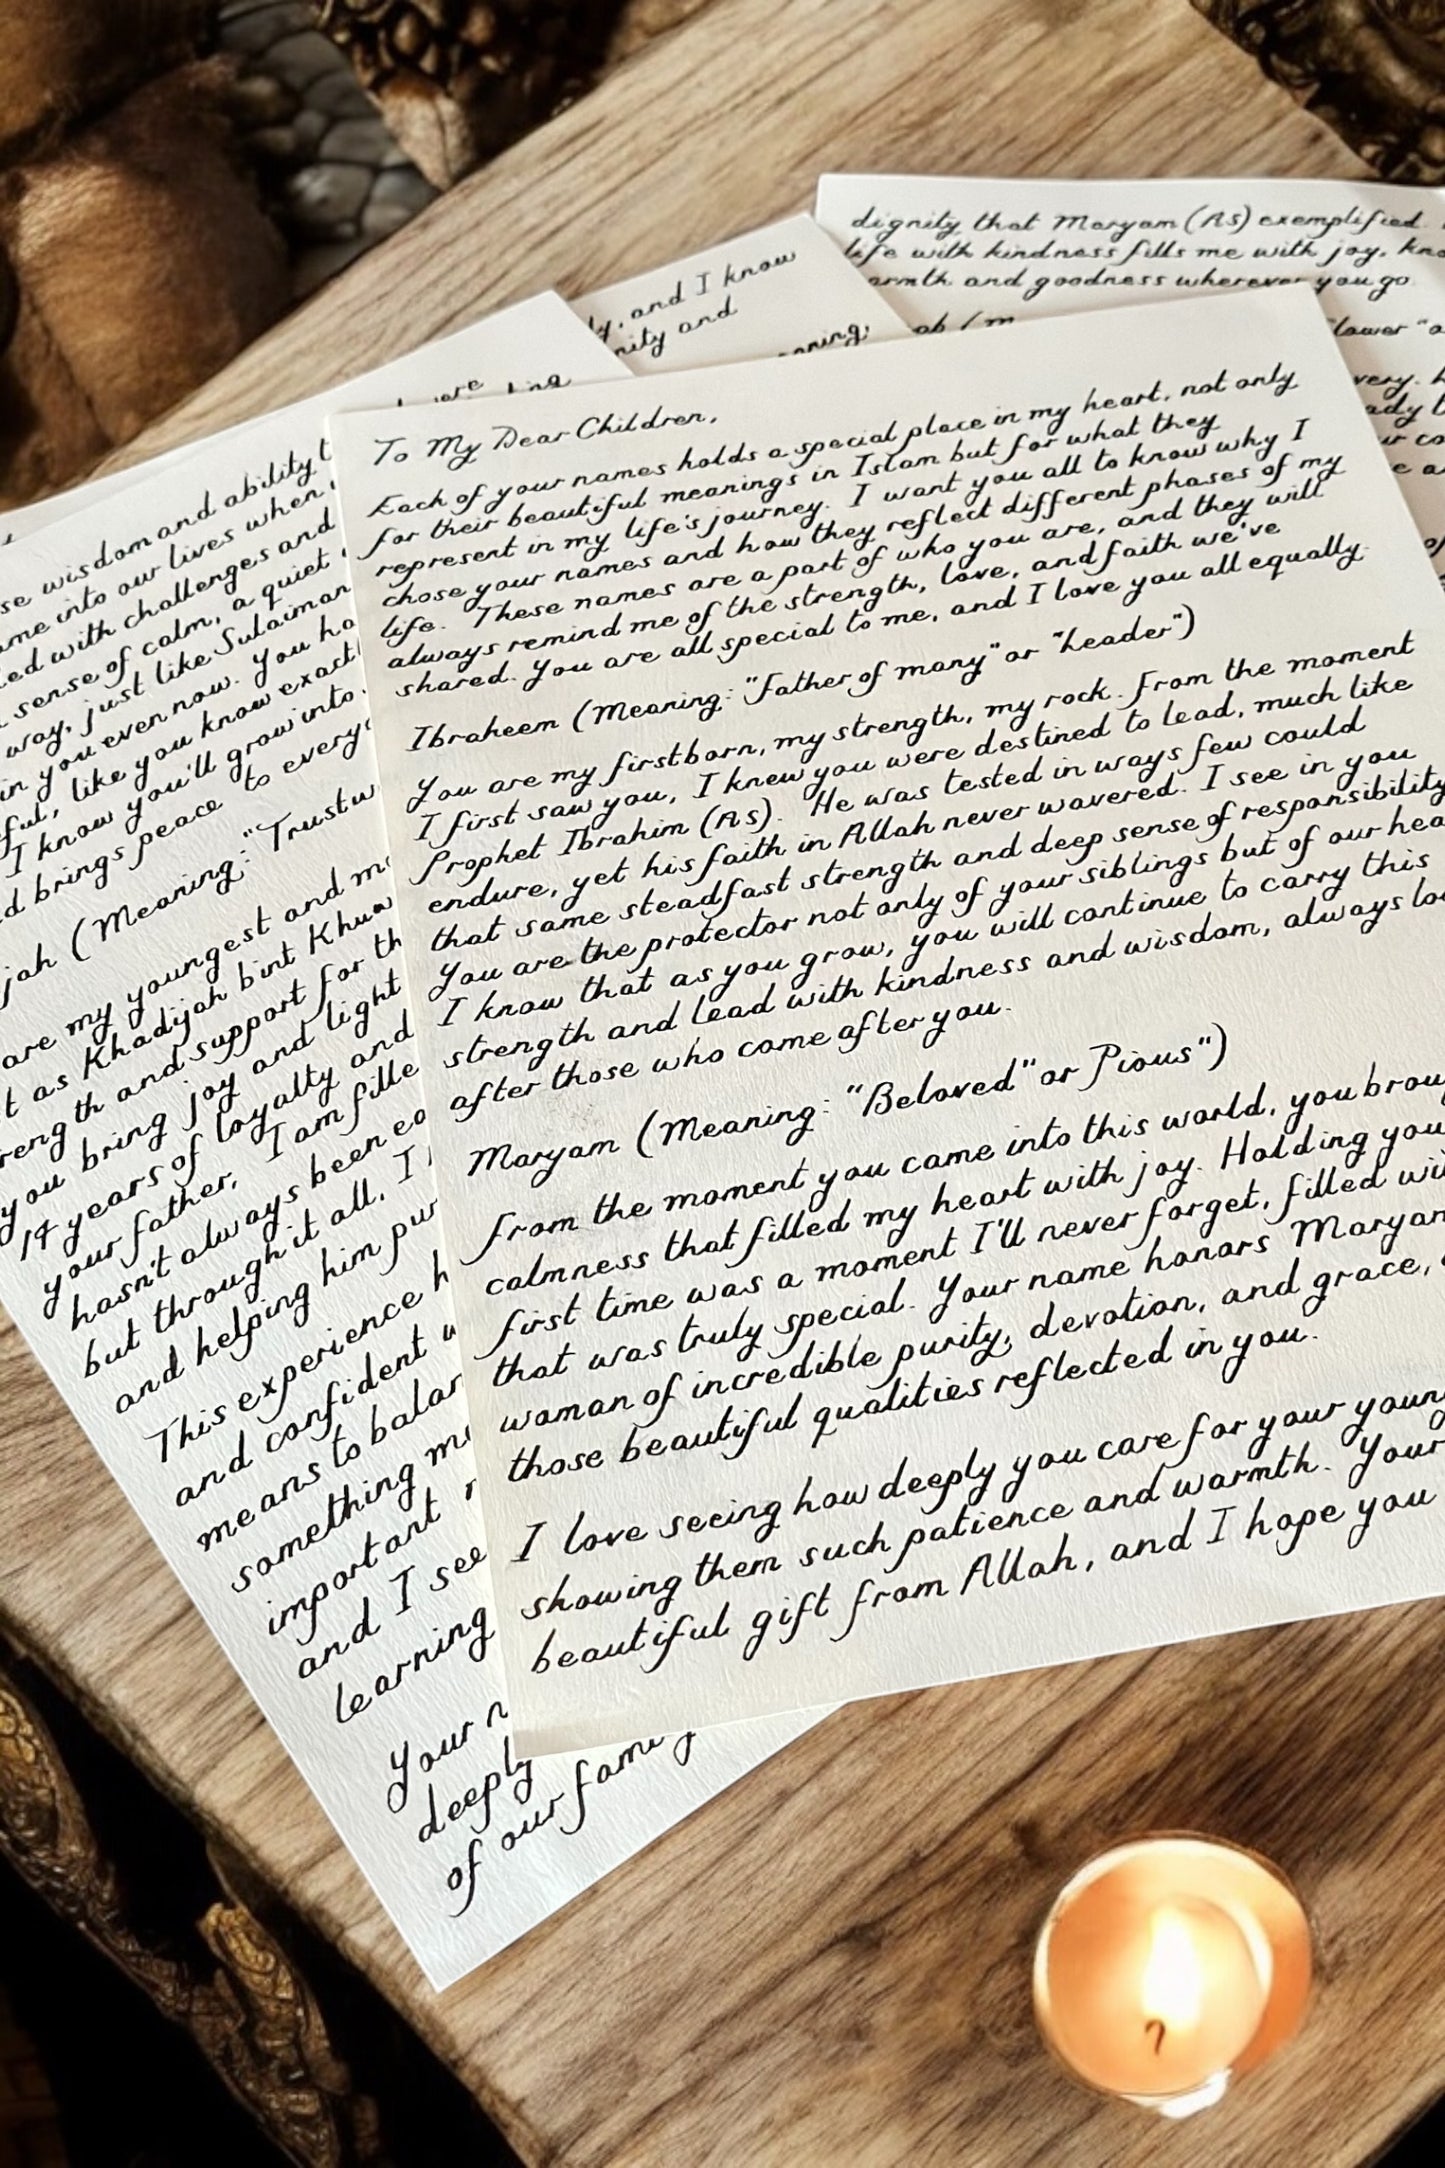 To My Dear Children,
Each of your names holds a special place in my heart, not only
for their beautiful meanings in Islam but for what they
represent in my life's journey. I want you all to know why I
chose your names and how they reflect different phases of my
life. These names are a part of who you are, and they will
always remind me of the strength, love, and faith we've
shared. You are all special to me, and I love you all equally.
Ibraheem (Meaning: "Father of many" or "Leader")
You are my firstborn, my strength, my rock. From the moment
I first saw you, I knew you were destined to lead, much like
Prophet Ibrahim (AS). He was tested in ways few could
endure, yet his faith in Allah never wavered. I see in you
that same steadfast strength and deep sense of responsibility
You are the protector not only of your siblings but of our hea
I know that as you grow, you will continue to carry this
strength and lead with kindness and wisdom, always lo
after those who come after you.
Maryam (Meaning: "Beloved" or Pious")
From the moment you came into this world, you brou
calmness that filled my heart with joy. Holding you
first time was a moment I'll never forget, filled wi
that was truly special. Your name honors Maryam
woman of incredible purity, devotion, and grace,
those beautiful qualities reflected in you.
I love seeing how deeply you care for your young
showing them such patience and warmth. Your
beautiful gift from Allah, and I hope you
se wisdom and ability t
ame into our lives when
ed with challenges and
sense of calm, a quiet
way, just like Sulaiman
in you even now. You ha
ful, like you know exact
I know you'll grow into
d brings peace to every
jah (Meaning: "Trustw
are my youngest and m
t as Khadijah bint Khuw
reng th and support for th
you bring joy and light
14 years of loyalty and
your father, I am fille
hasn't always been ea
but through it all, I
and helping him pur
This experience h
and confident w
means to balan
something m
important
and I see
learning
Your n
deeply
of our family
y, and I know
nity and
aning:
were
dignity that Maryam (AS) exemplified.
life with kindness fills me with joy, kno
armth and goodness wherever you go.
lower" o
very.
ady